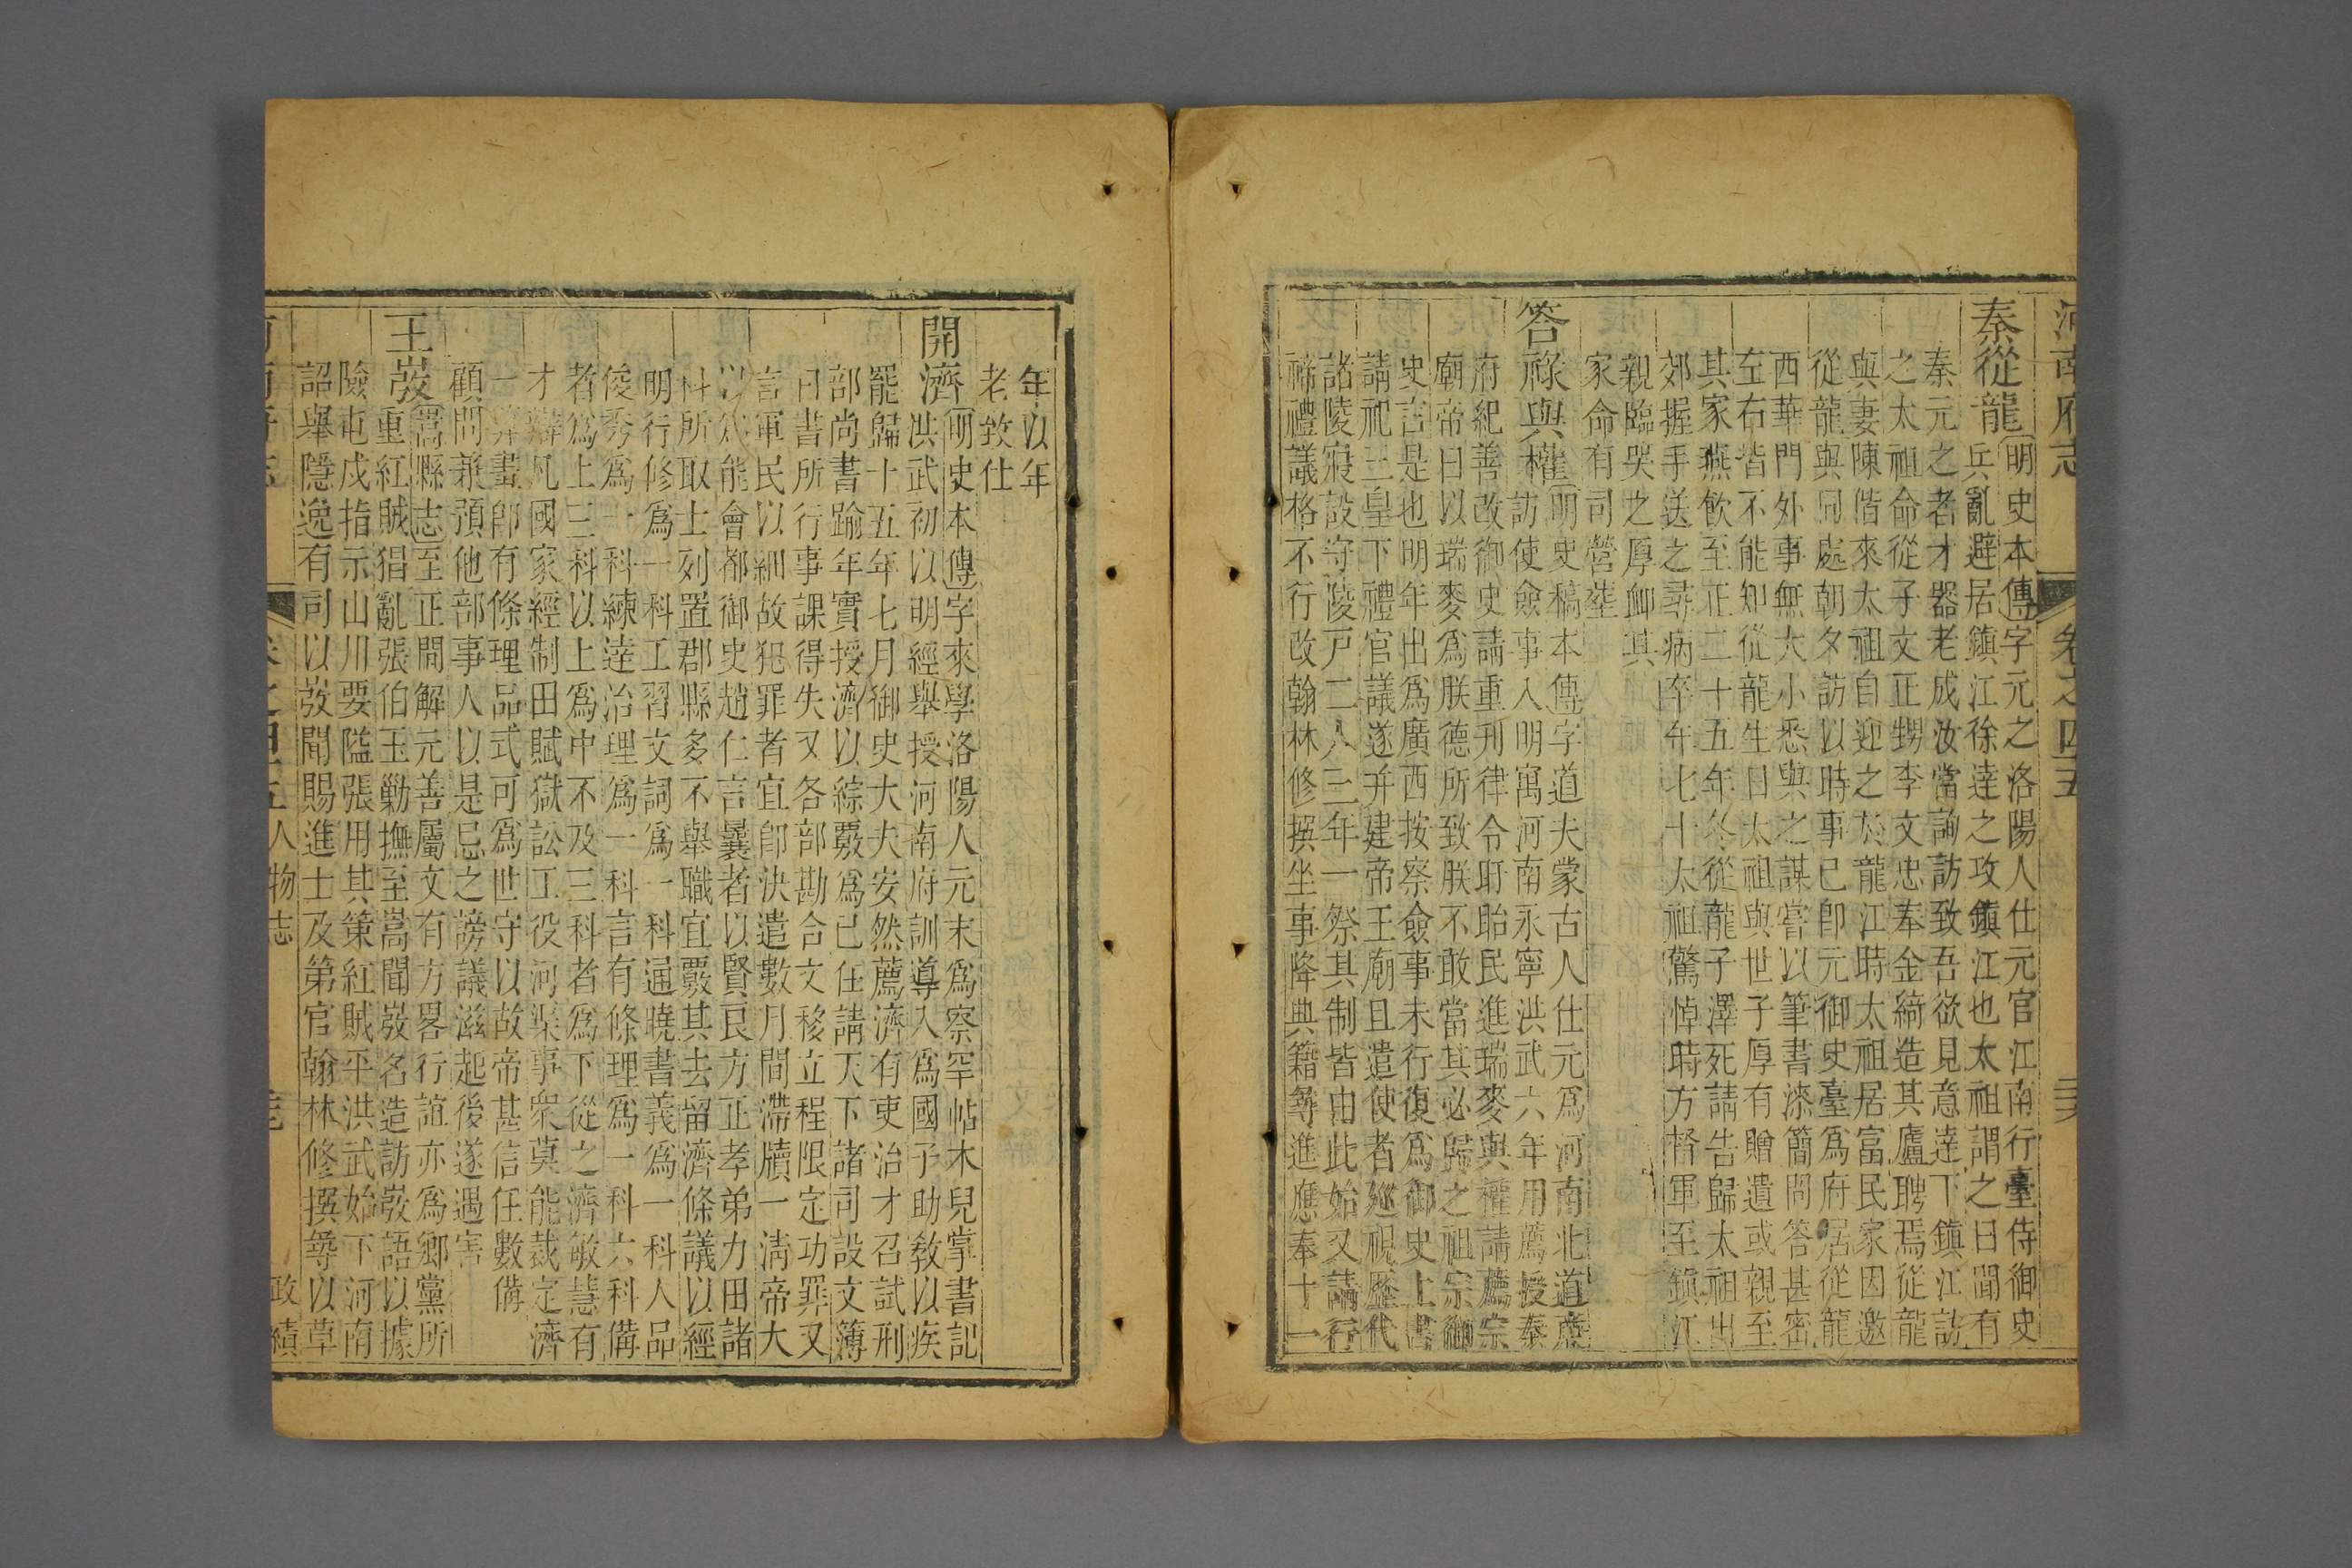 河南府志 卷之四五
秦從龍
明史本傳字元之洛陽人仕元官江南行臺侍御史
兵亂避居鎮江徐達之攻鎮江也太祖謂之曰聞有
秦元之者才器老成汝當詢訪致吾欲見意達下鎮江訪
之太祖命從子文正甥李文忠奉金綺造其廬聘焉從龍
與妻陳偕來太祖自迎之於龍江時太祖居富民家因邀
從龍與同處朝夕訪以時事已即元御史臺為府居從龍
西華門外事無大小悉與之謀嘗以筆書漆簡問答甚密
左右皆不能知從龍生日太祖與世子厚有贈遺或親至
其家燕飲至正二十五年冬從龍子澤死請告歸太祖出
郊握手送之尋病卒年七十太祖驚悼時方督軍至鎮江
親臨哭之厚卹其
家命有司營塟
答祿與權
明史稿本傳字道夫蒙古人仕元為河南北道廉
訪使僉事入明寓河南永寧洪武六年用薦授秦
府紀善改御史請重刊律令盱眙民進瑞麥與權請薦宗
廟帝曰以瑞麥為朕德所致朕不敢當其必歸之祖宗御
史言是也明年出為廣西按察僉事未行復為御史上書
請祀三皇下禮官議遂并建帝王廟且遣使者巡視歷代
諸陵寢設守陵戶二人三年一祭其制皆由此始又請行
禘禮議格不行改翰林修撰坐事降典籍尋進應奉十一
年以年
老致仕
開濟
明史本傳字來學洛陽人元末為察罕帖木兒掌書記
洪武初以明經舉授河南府訓導入為國子助教以疾
罷歸十五年七月御史大夫安然薦濟有吏治才召試刑
部尚書踰年實授濟以綜覈為已任請天下諸司設文簿
日書所行事課得失又各部勘合文移立程限定功罪又
言軍民以細故犯罪者宜即決遣數月間滯牘一清帝大
以為能會都御史趙仁言曩者以賢良方正孝弟力田諸
科所取士列置郡縣多不舉職宜覈其去留濟條議以經
明行修為一科工習文詞為一科通曉書義為一科人品
俊秀為一科練達治理為一科言有條理為一科六科備
者為上三科以上為中不及三科者為下從之濟敏慧有
才辯凡國家經制田賦獄訟工役河渠事衆莫能裁定濟
一算畫即有條理品式可為世守以故帝甚信任數備
顧問兼預他部事人以是忌之謗議滋起後遂遇害
王敪
嵩縣志至正間解元善屬文有方畧行誼亦為鄉黨所
重紅賊猖亂張伯玉勦撫至嵩聞敪名造訪敪語以據
險屯戍指示山川要隘張用其策紅賊平洪武始下河南
詔舉隱逸有司以敪聞賜進士及第官翰林修撰尋以草
人物志 政績